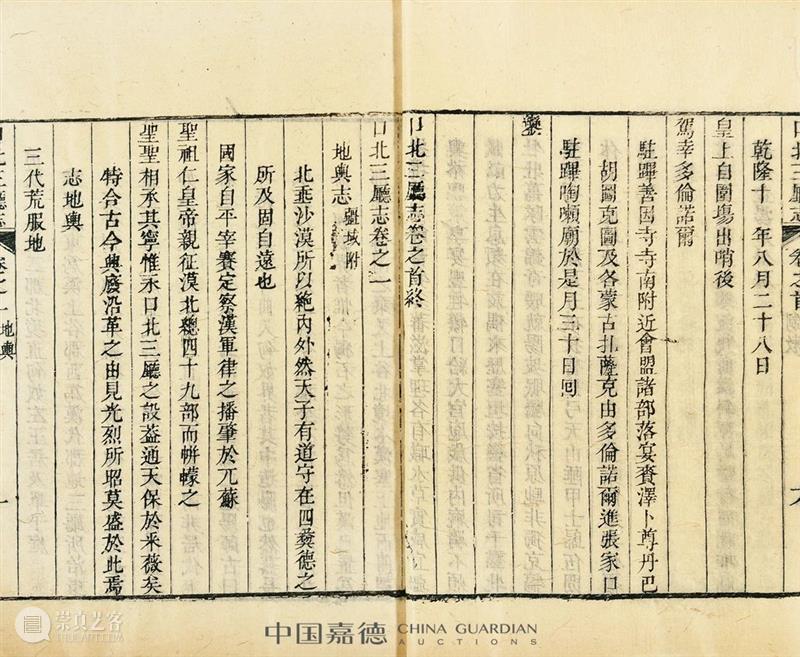 口北三廳志 卷之首
乾隆十年八月二十八日
皇上自圍塲出哨後
駕幸多倫諾爾
駐蹕善因寺寺南附近會盟諸部落宴賚澤卜尊丹巴
胡圖克圖及各蒙古扎薩克由多倫諾爾進張家口
駐蹕陶賴廟於是月三十日回
鑾
口北三廳志卷之首終
口北三廳志卷之一
地輿志 疆域附
北乖沙漠所以絶內外然天子有道守在四彝德之
所及固自遠也
國家自平宰賽定察漢軍律之播肇於兀蘇
聖祖仁皇帝親征漠北總四十九部而帡幪之
聖聖相承其寧惟永口北三廳之設葢通天保於采薇矣
特合古今興廢沿革之由見光烈所昭莫盛於此焉
志地輿
三代荒服地
口北三廳志 卷之一 地輿 一
崇真艺客
中国嘉德 CHINA GUARDIAN
AUCTIONS